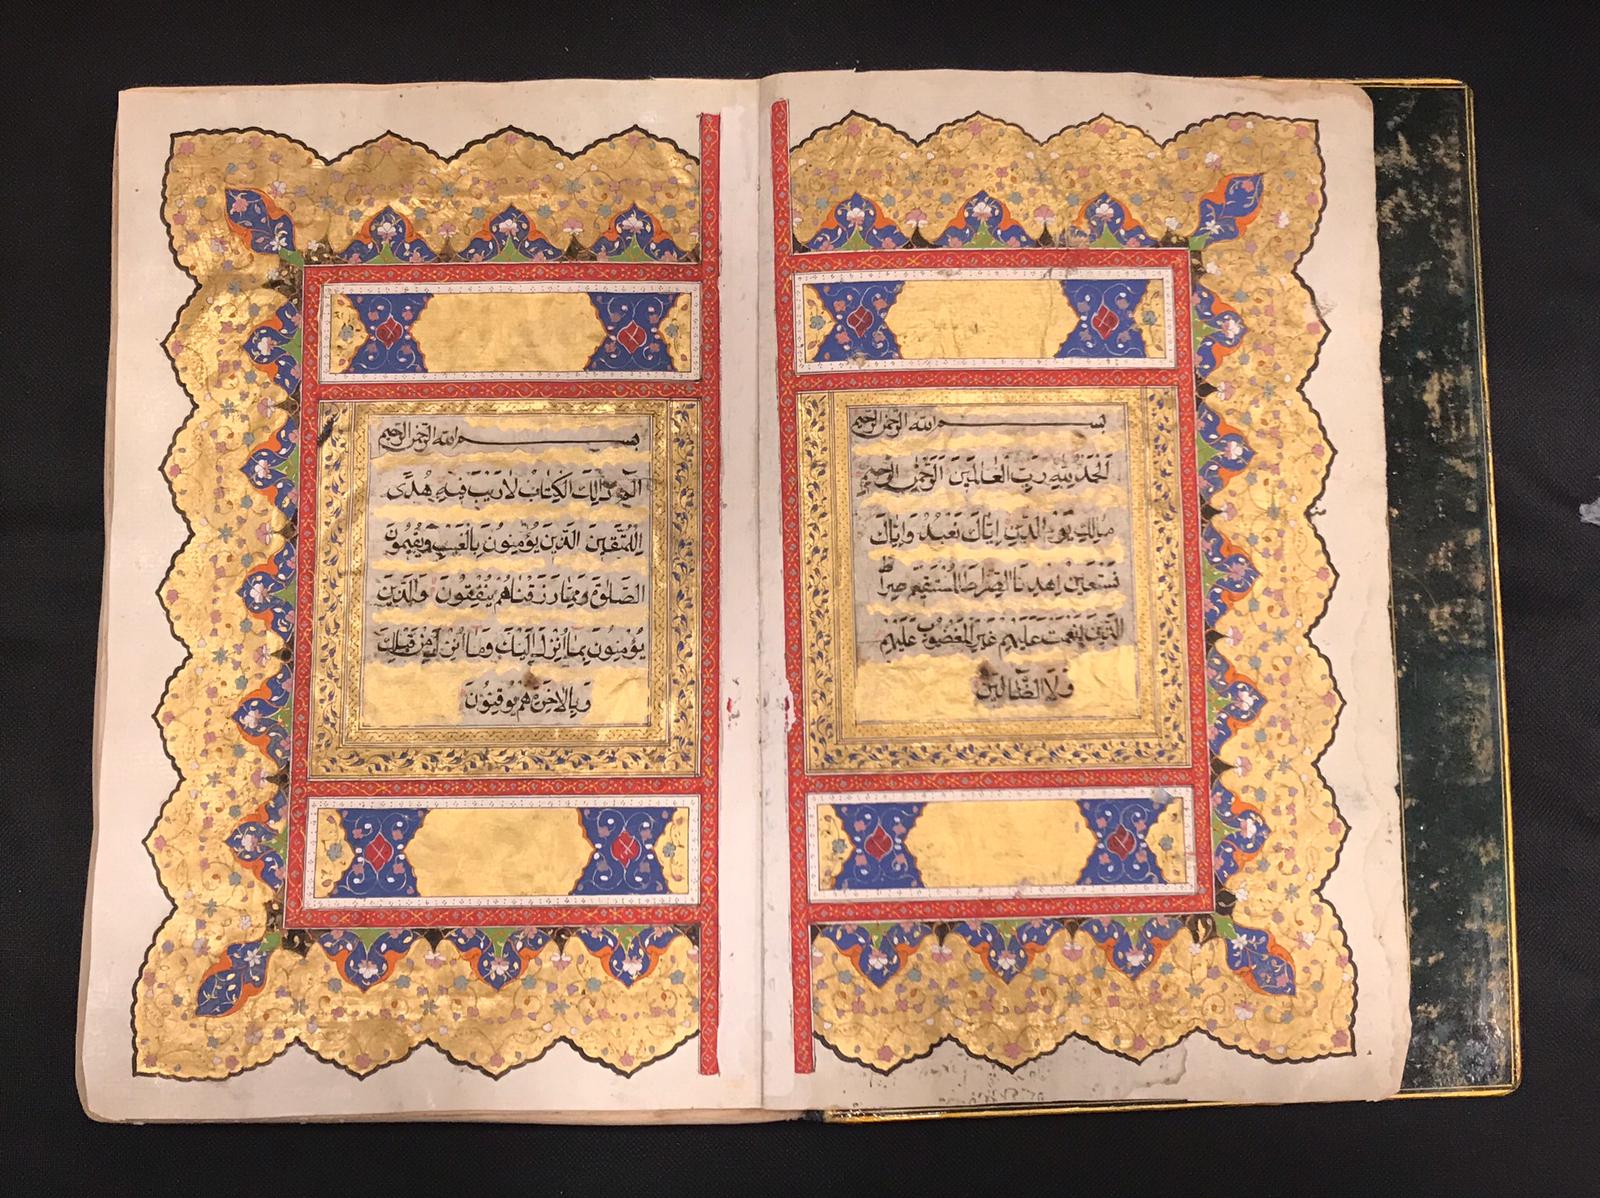 بسم الله الرحمن الرحيم
اَلْحَمْدُ لِلّٰهِ رَبِّ الْعَالَمِينَ اَلرَّحْمٰنِ الرَّحِيمِ
مَالِكِ يَوْمِ الدِّينِ اِيَّاكَ نَعْبُدُ وَاِيَّاكَ
نَسْتَعِينُ اِهْدِنَا الصِّرَاطَ الْمُسْتَقِيمَ صِرَاطَ
الَّذِينَ اَنْعَمْتَ عَلَيْهِمْ غَيْرِ الْمَغْضُوبِ عَلَيْهِمْ
وَلَا الضَّالِّينَ
بسم الله الرحمن الرحيم
الٓمٓ ذٰلِكَ الْكِتَابُ لَا رَيْبَ فِيهِ هُدًى
لِلْمُتَّقِينَ الَّذِينَ يُؤْمِنُونَ بِالْغَيْبِ وَيُقِيمُونَ
الصَّلٰوةَ وَمِمَّا رَزَقْنَاهُمْ يُنْفِقُونَ وَالَّذِينَ
يُؤْمِنُونَ بِمَا اُنْزِلَ اِلَيْكَ وَمَا اُنْزِلَ مِنْ قَبْلِكَ
وَبِالْاٰخِرَةِ هُمْ يُوقِنُونَ